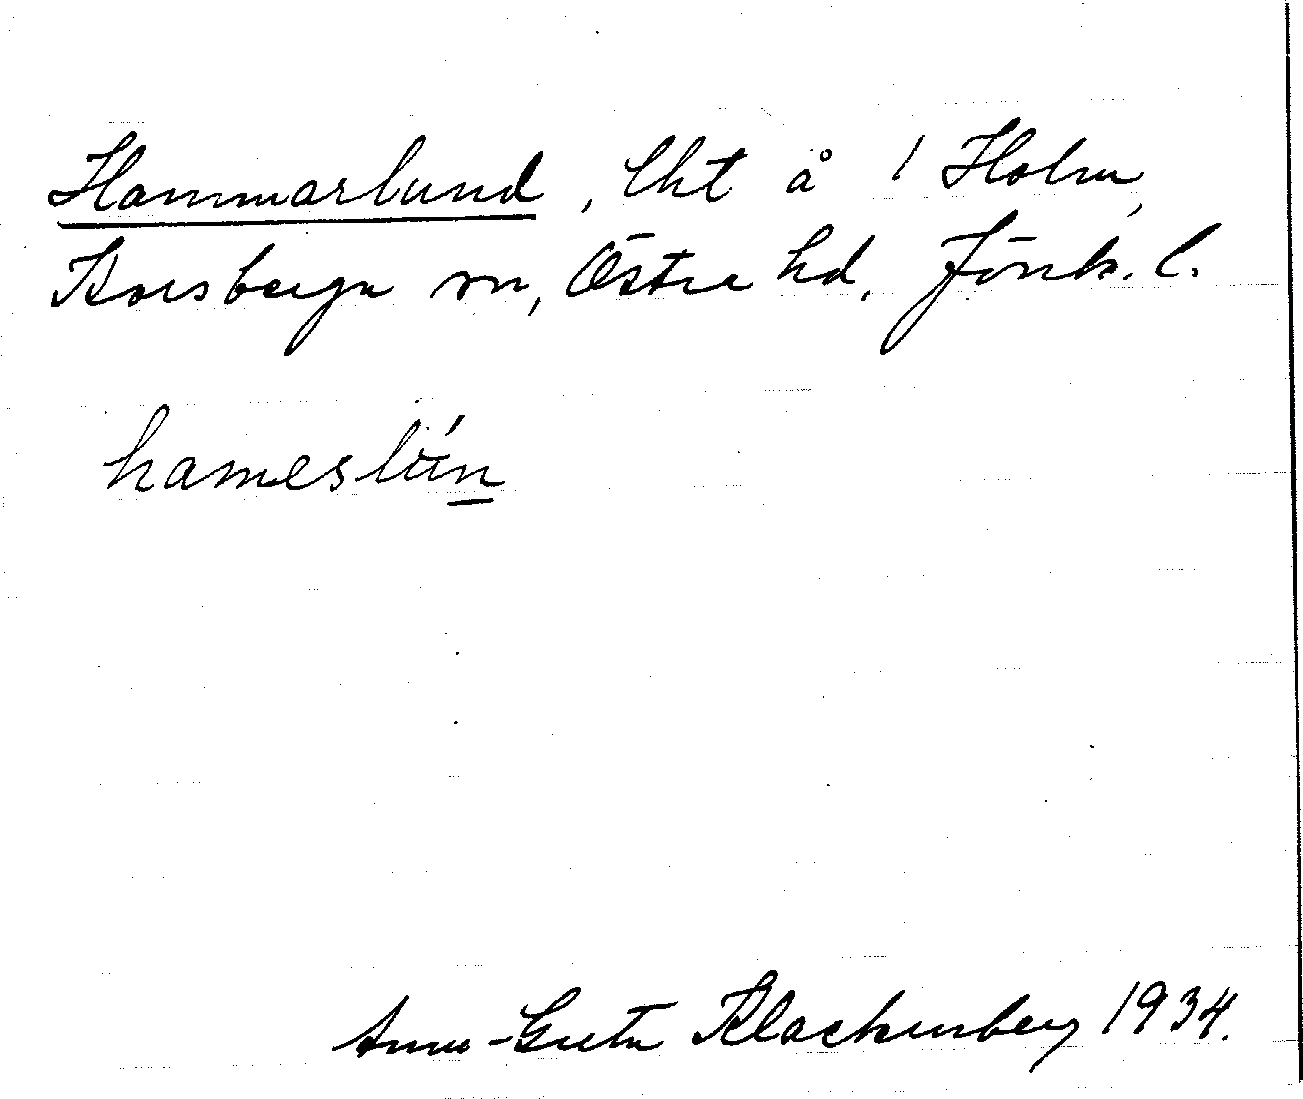 Hammarlund, lht å 1 Holm,
Korsberga sn, Östra hd, Jönk. l.
hameslún
Anna-Greta Klackenberg 1934.